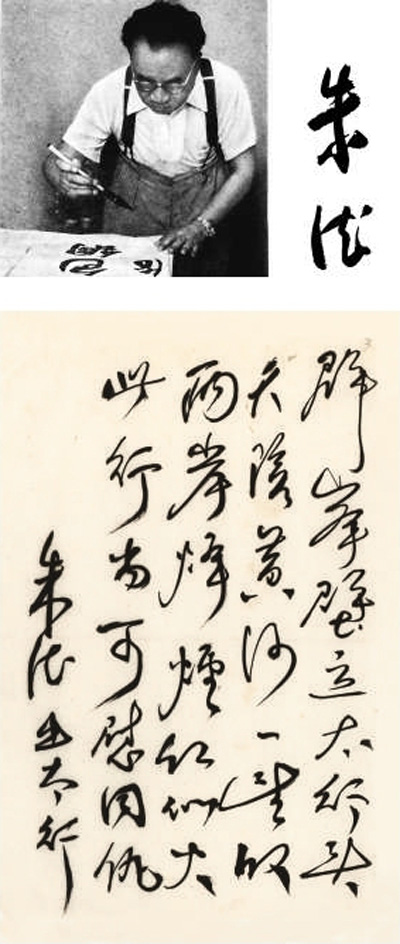 朱德
群峯壁立太行头
天险黄河一望收
两岸烽煙红似火
此行当可慰同仇
朱德出太行